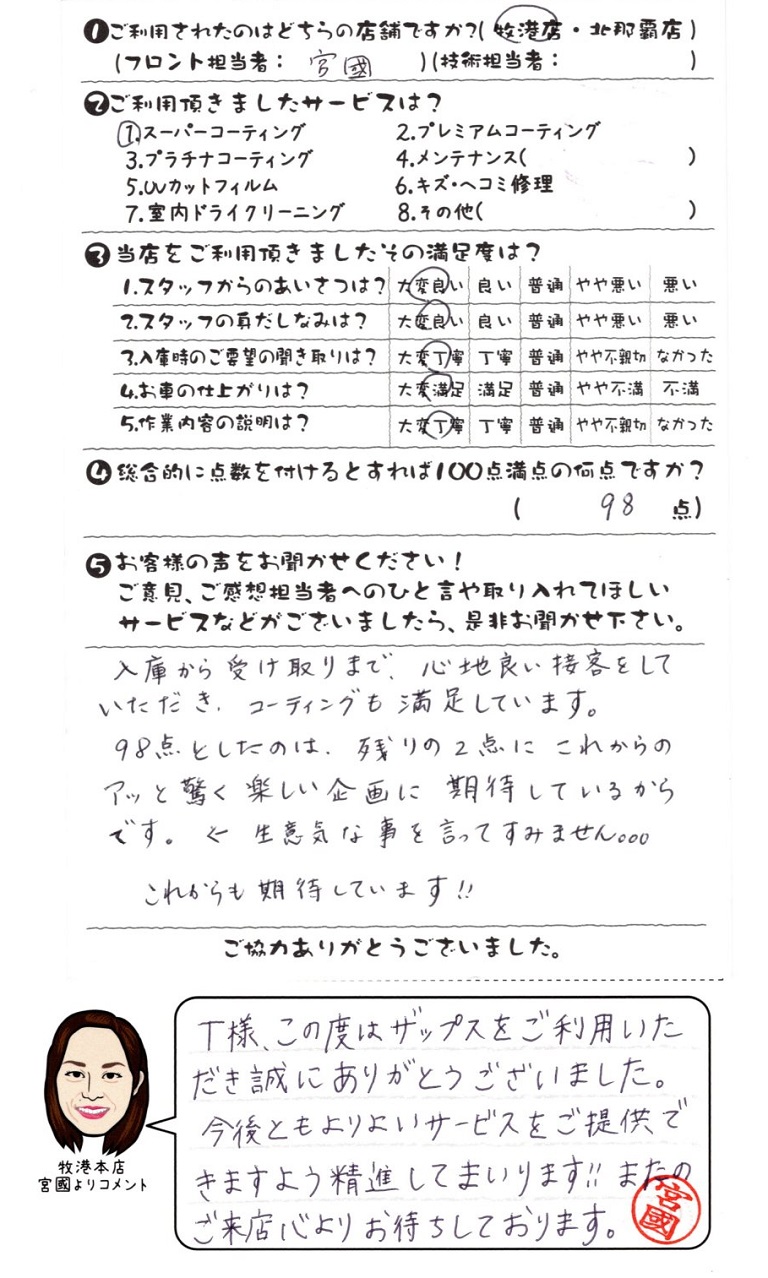 ❶ご利用されたのはどちらの店舗ですか?(牧港店・北那覇店)
(フロント担当者: 宮國 )(技術担当者: )
❷ご利用頂きましたサービスは?
1.スーパーコーティング 2.プレミアムコーティング
3.プラチナコーティング 4.メンテナンス( )
5.UVカットフィルム 6.キズ・ヘコミ修理
7.室内ドライクリーニング 8.その他( )
❸当店をご利用頂きましたその満足度は?
1.スタッフからのあいさつは? 大変良い 良い 普通 やや悪い 悪い
2.スタッフの身だしなみは? 大変良い 良い 普通 やや悪い 悪い
3.入庫時のご要望の聞き取りは? 大変丁寧 丁寧 普通 やや不親切 なかった
4.お車の仕上がりは? 大変満足 満足 普通 やや不満 不満
5.作業内容の説明は? 大変丁寧 丁寧 普通 やや不親切 なかった
❹総合的に点数を付けるとすれば100点満点の何点ですか?
( 98 点)
❺お客様の声をお聞かせください!
ご意見、ご感想担当者へのひと言や取り入れてほしい
サービスなどがございましたら、是非お聞かせ下さい。
入庫から受け取りまで、心地良い接客をして
いただき、コーティングも満足しています。
98点としたのは、残りの2点にこれからの
アッと驚く楽しい企画に期待しているから
です。← 生意気な事を言ってすみません。。。
これからも期待しています!!
ご協力ありがとうございました。
T様、この度はザップスをご利用いた
だき誠にありがとうございました。
今後ともよりよいサービスをご提供で
きますよう精進してまいります!! またの
ご来店心よりお待ちしております。
宮國
牧港本店
宮國よりコメント